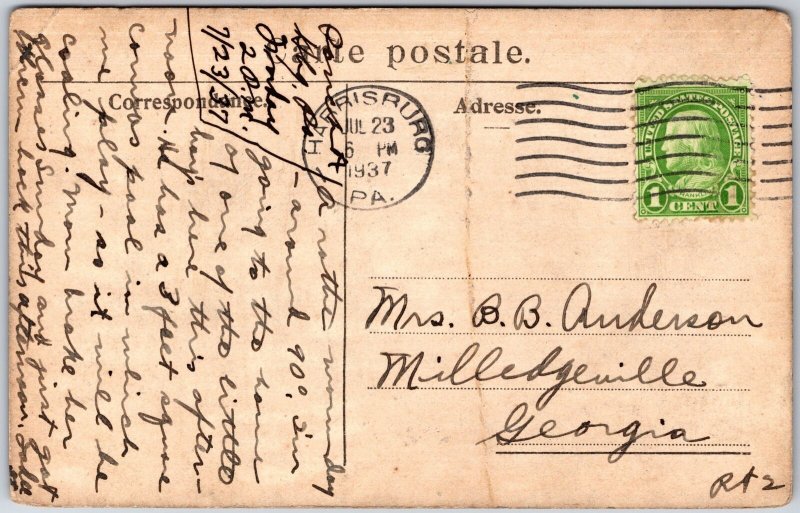 Carte postale.
Correspondance.
Adresse.
Hbg. Pa
Friday
2 P.M.
7/23/37
A rather warm day
- around 90°. I'm
going to the home
of one of the little
boys here this after-
noon. He has a 3 feet square
canvas pool in which
we play - as it will be
cooling. Mom broke her
glasses Sunday and just got
them back this afternoon.
HARRISBURG
JUL 23
6 PM
1937
PA.
UNITED STATES POSTAGE
FRANKLIN
1 CENT 1
Mrs. B. B. Anderson
Milledgeville
Georgia
Rt 2